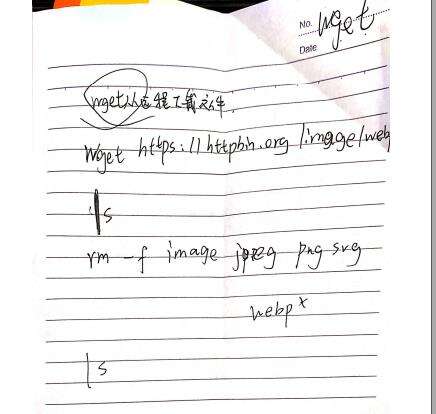 No. wget
Date
wget从远程下载文件.
wget https://httpbin.org/image/web
ls
rm -f image jpeg png svg
webp*
ls